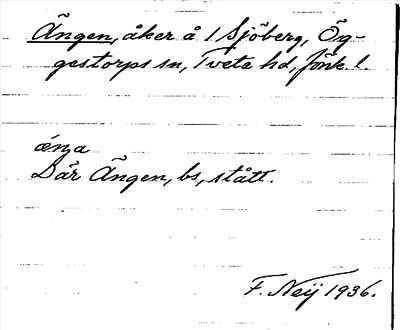 Ängen, åker å 1 Sjöberg, Ög-
gestorps sn, Tveta hd, Jönk l.
ǽnga
Där Ängen, bs, stått.
F. Neij 1936.